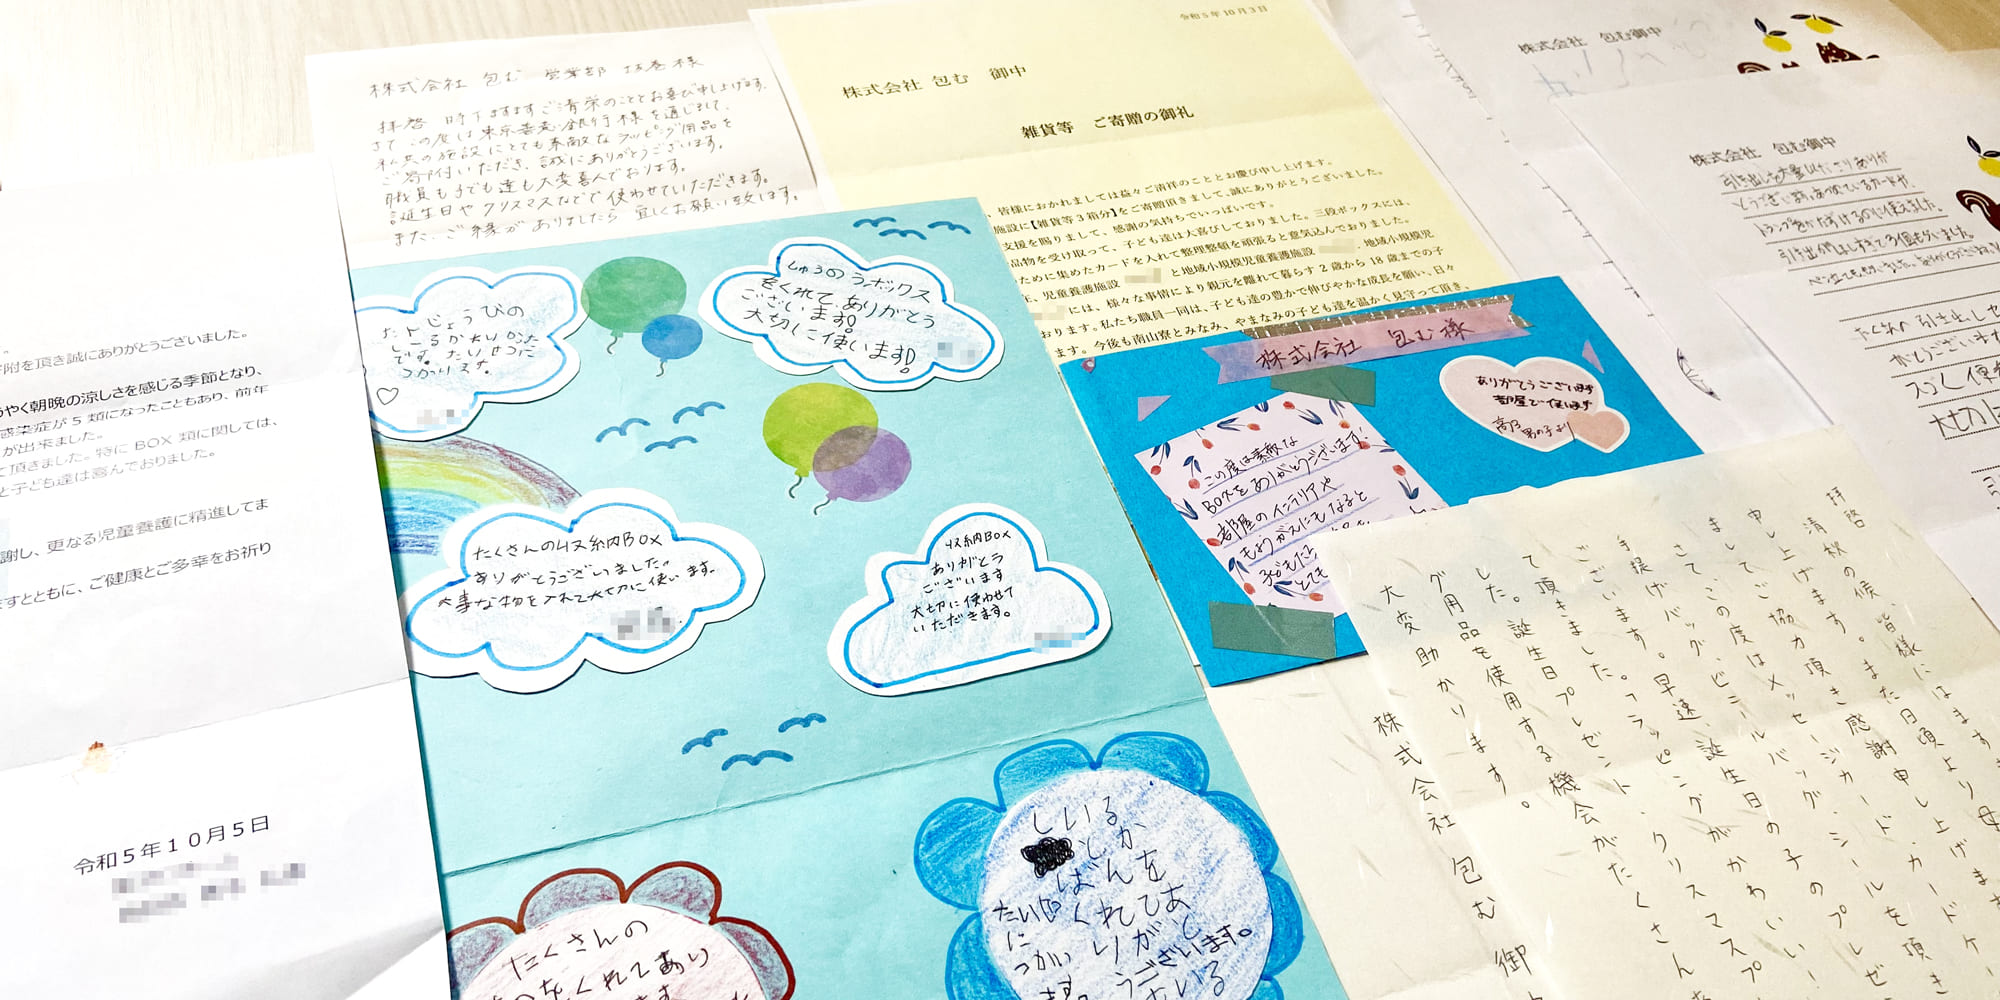 株式会社 包む 営業部 様
拝啓 時下ますますご清栄のこととお喜び申し上げます。
さて この度は東京善意銀行様を通じまして、
私共の施設にとても素敵なラッピング用品を
ご寄付いただき、誠にありがとうございます。
職員も子ども達も大変喜んでおります。
誕生日やクリスマスなどで使わせていただきます。
また、ご縁がありましたら 宜しくお願い致します。
令和5年10月3日
株式会社 包む 御中
雑貨等 ご寄贈の御礼
皆様におかれましては益々ご清祥のこととお慶び申し上げます。
施設に【雑貨等3箱分】をご寄贈頂きまして、誠にありがとうございました。
支援を賜りまして、感謝の気持ちでいっぱいです。
品物を受け取って、子ども達は大喜びしておりました。三段ボックスには、
ために集めたカードを入れて整理整頓を頑張ると意気込んでおりました。
児童養護施設 と地域小規模児童養護施設 地域小規模児
には、様々な事情により親元を離れて暮らす2歳から18歳までの子
おります。私たち職員一同は、子ども達の豊かで伸びやかな成長を願い、日々
ます。今後も南山寮とみなみ、やまなみの子ども達を温かく見守って頂き、
株式会社 包む御中
株式会社 包む御中
引き出しを大量にいただきありが
とうございます。あつめているカードや、
トランプをかたずけるのに使えました。
たくさん 引き出しや
がとうございま
大切に
附を頂き誠にありがとうございました。
うやく朝晩の涼しさを感じる季節となり、
感染症が5類になったこともあり、前年
が出来ました。
頂きました。特にBOX類に関しては、
と子ども達は喜んでおりました。
謝し、更なる児童養護に精進してま
ますとともに、ご健康とご多幸をお祈り
令和5年10月5日
たんじょうびの
しーるかわいかった
です。たいせつに
つかいます。
しゅうのうボックス
をくれて、ありがとう
ございます!
大切に使います!
たくさんの収納BOX
ありがとうございました。
大事な物を入れて大切に使います。
収納BOX
ありがとう
ございます
大切に使わせて
いただきます。
株式会社 包む様
ありがとうございます
部屋で使います
高3 男の子より
この度は素敵な
BOXをありがとうございます!
お部屋のインテリアや
もようがえにもなると
子どもたち
とても
たくさんの
をくれてあり
しいる
とか
ばんを
くれてあ
りがと
うござ
います。
たいじ
に
つかい
ます
拝啓
清秋の候、皆様にはますま
申し上げます。また日頃より
ましてご協力頂き感謝申し上げます。
さてこの度はメッセージカード、カードケー
手提げバッグ、ビニールバッグ、シールを頂き
ございます。早速、誕生日の子のプレゼ
て頂きました。「ラッピングがかわいい!
した。誕生日プレゼント、クリスマスプ
グ用品を使用する機会がたくさんあ
大変助かります。
株式会社 包む 御